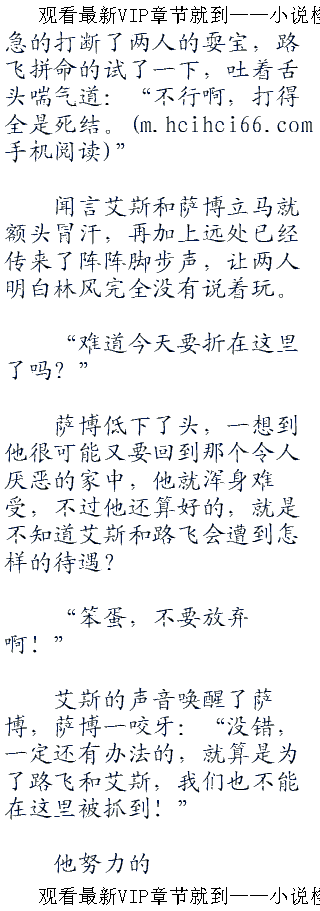 观看最新VIP章节就到——小说检
急的打断了两人的耍宝，路
飞拼命的试了一下，吐着舌
头喘气道：“不行啊，打得
全是死结。(m.hcihci66.com
手机阅读)”
闻言艾斯和萨博立马就
额头冒汗，再加上远处已经
传来了阵阵脚步声，让两人
明白林风完全没有说着玩。
“难道今天要折在这里
了吗？”
萨博低下了头，一想到
他很可能又要回到那个令人
厌恶的家中，他就浑身难
受，不过他还算好的，就是
不知道艾斯和路飞会遭到怎
样的待遇？
“笨蛋，不要放弃
啊！”
艾斯的声音唤醒了萨
博，萨博一咬牙：“没错，
一定还有办法的，就算是为
了路飞和艾斯，我们也不能
在这里被抓到！”
他努力的
观看最新VIP章节就到——小说检